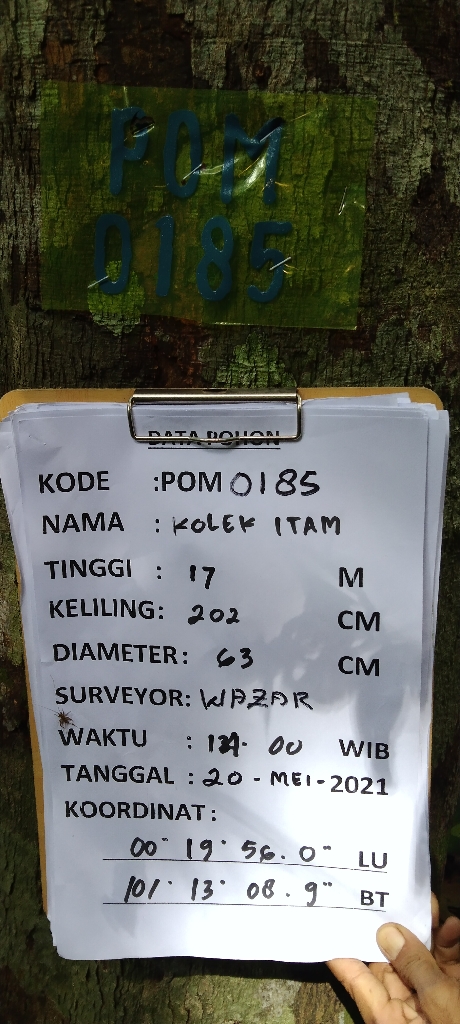 POM
0185
DATA POHON
KODE :POM 0185
NAMA : KOLEK ITAM
TINGGI : 17 M
KELILING: 202 CM
DIAMETER: 63 CM
SURVEYOR: WAZAR
WAKTU : 00 WIB
TANGGAL : 20 - MEI - 2021
KOORDINAT:
00° 19' 56.0" LU
101° 13' 08.9" BT